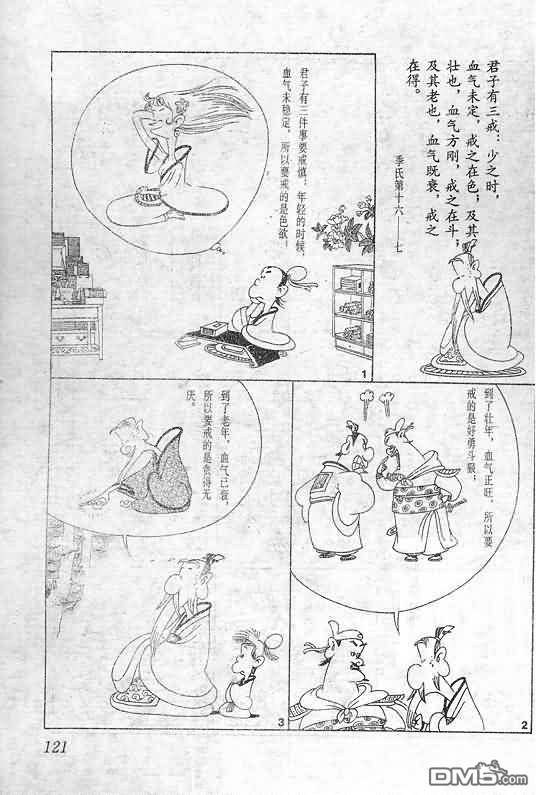 君子有三戒：少之时，
血气未定，戒之在色；及其
壮也，血气方刚，戒之在斗；
及其老也，血气既衰，戒之
在得。
季氏第十六——七
君子有三件事要戒慎：年轻的时候，
血气未稳定，所以要戒的是色欲；
1
到了壮年，血气正旺，所以要
戒的是好勇斗狠；
2
到了老年，血气已衰，
所以要戒的是贪得无
厌。
3
121
DM5.com